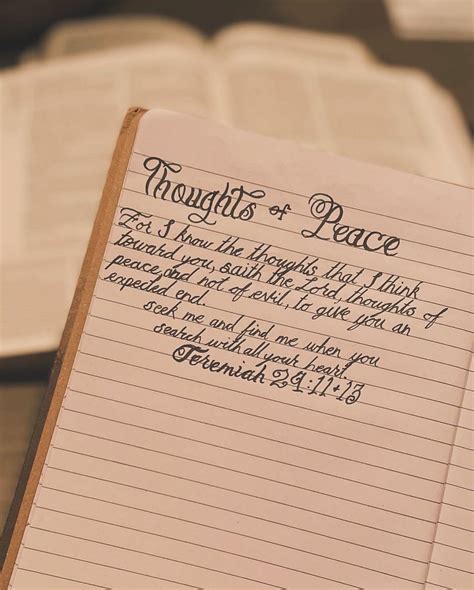 Thoughts of Peace
For I know the thoughts that I think
toward you, saith the Lord, thoughts of
peace, and not of evil, to give you an
expected end.
seek me and find me when you
search with all your heart.
Jeremiah 29:11+13